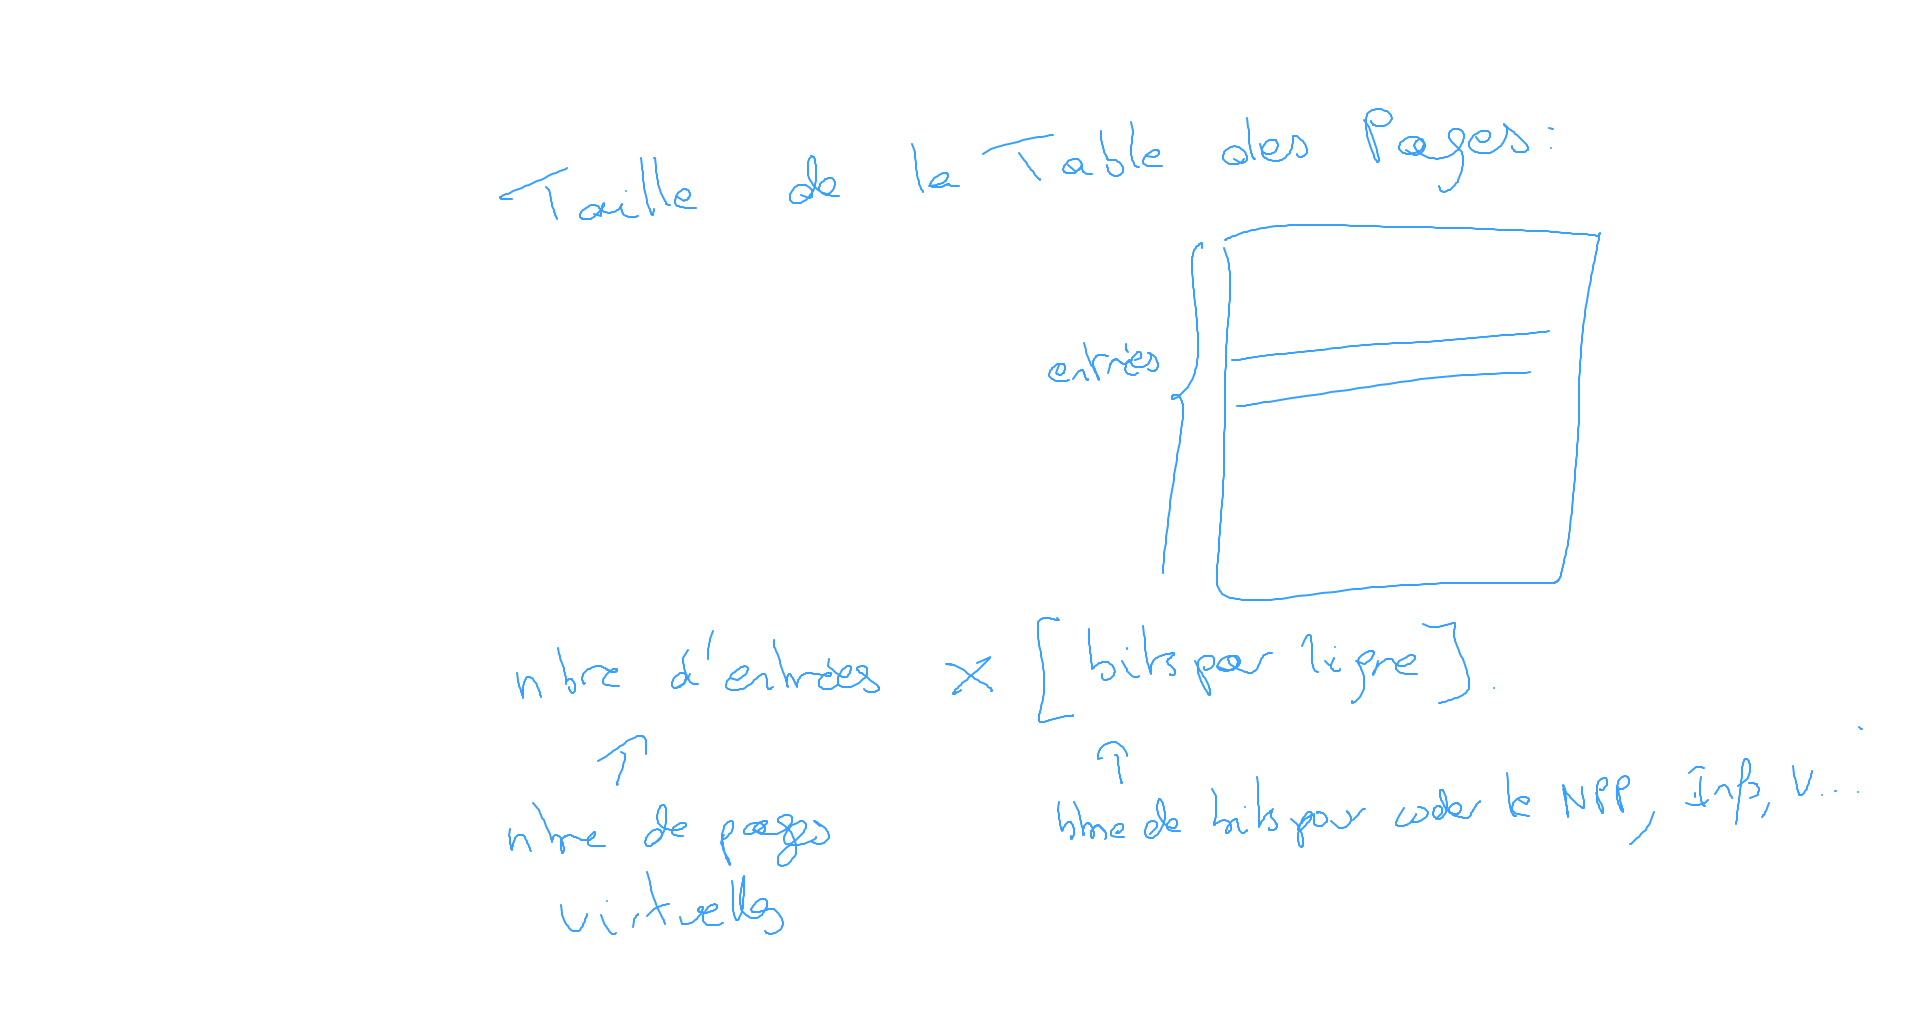 Taille de la Table des Pages:
entrées
nbre d'entrées × [bits par ligne].
nbre de pages
virtuelles
nbre de bits pour coder le NPP, Inf, V...